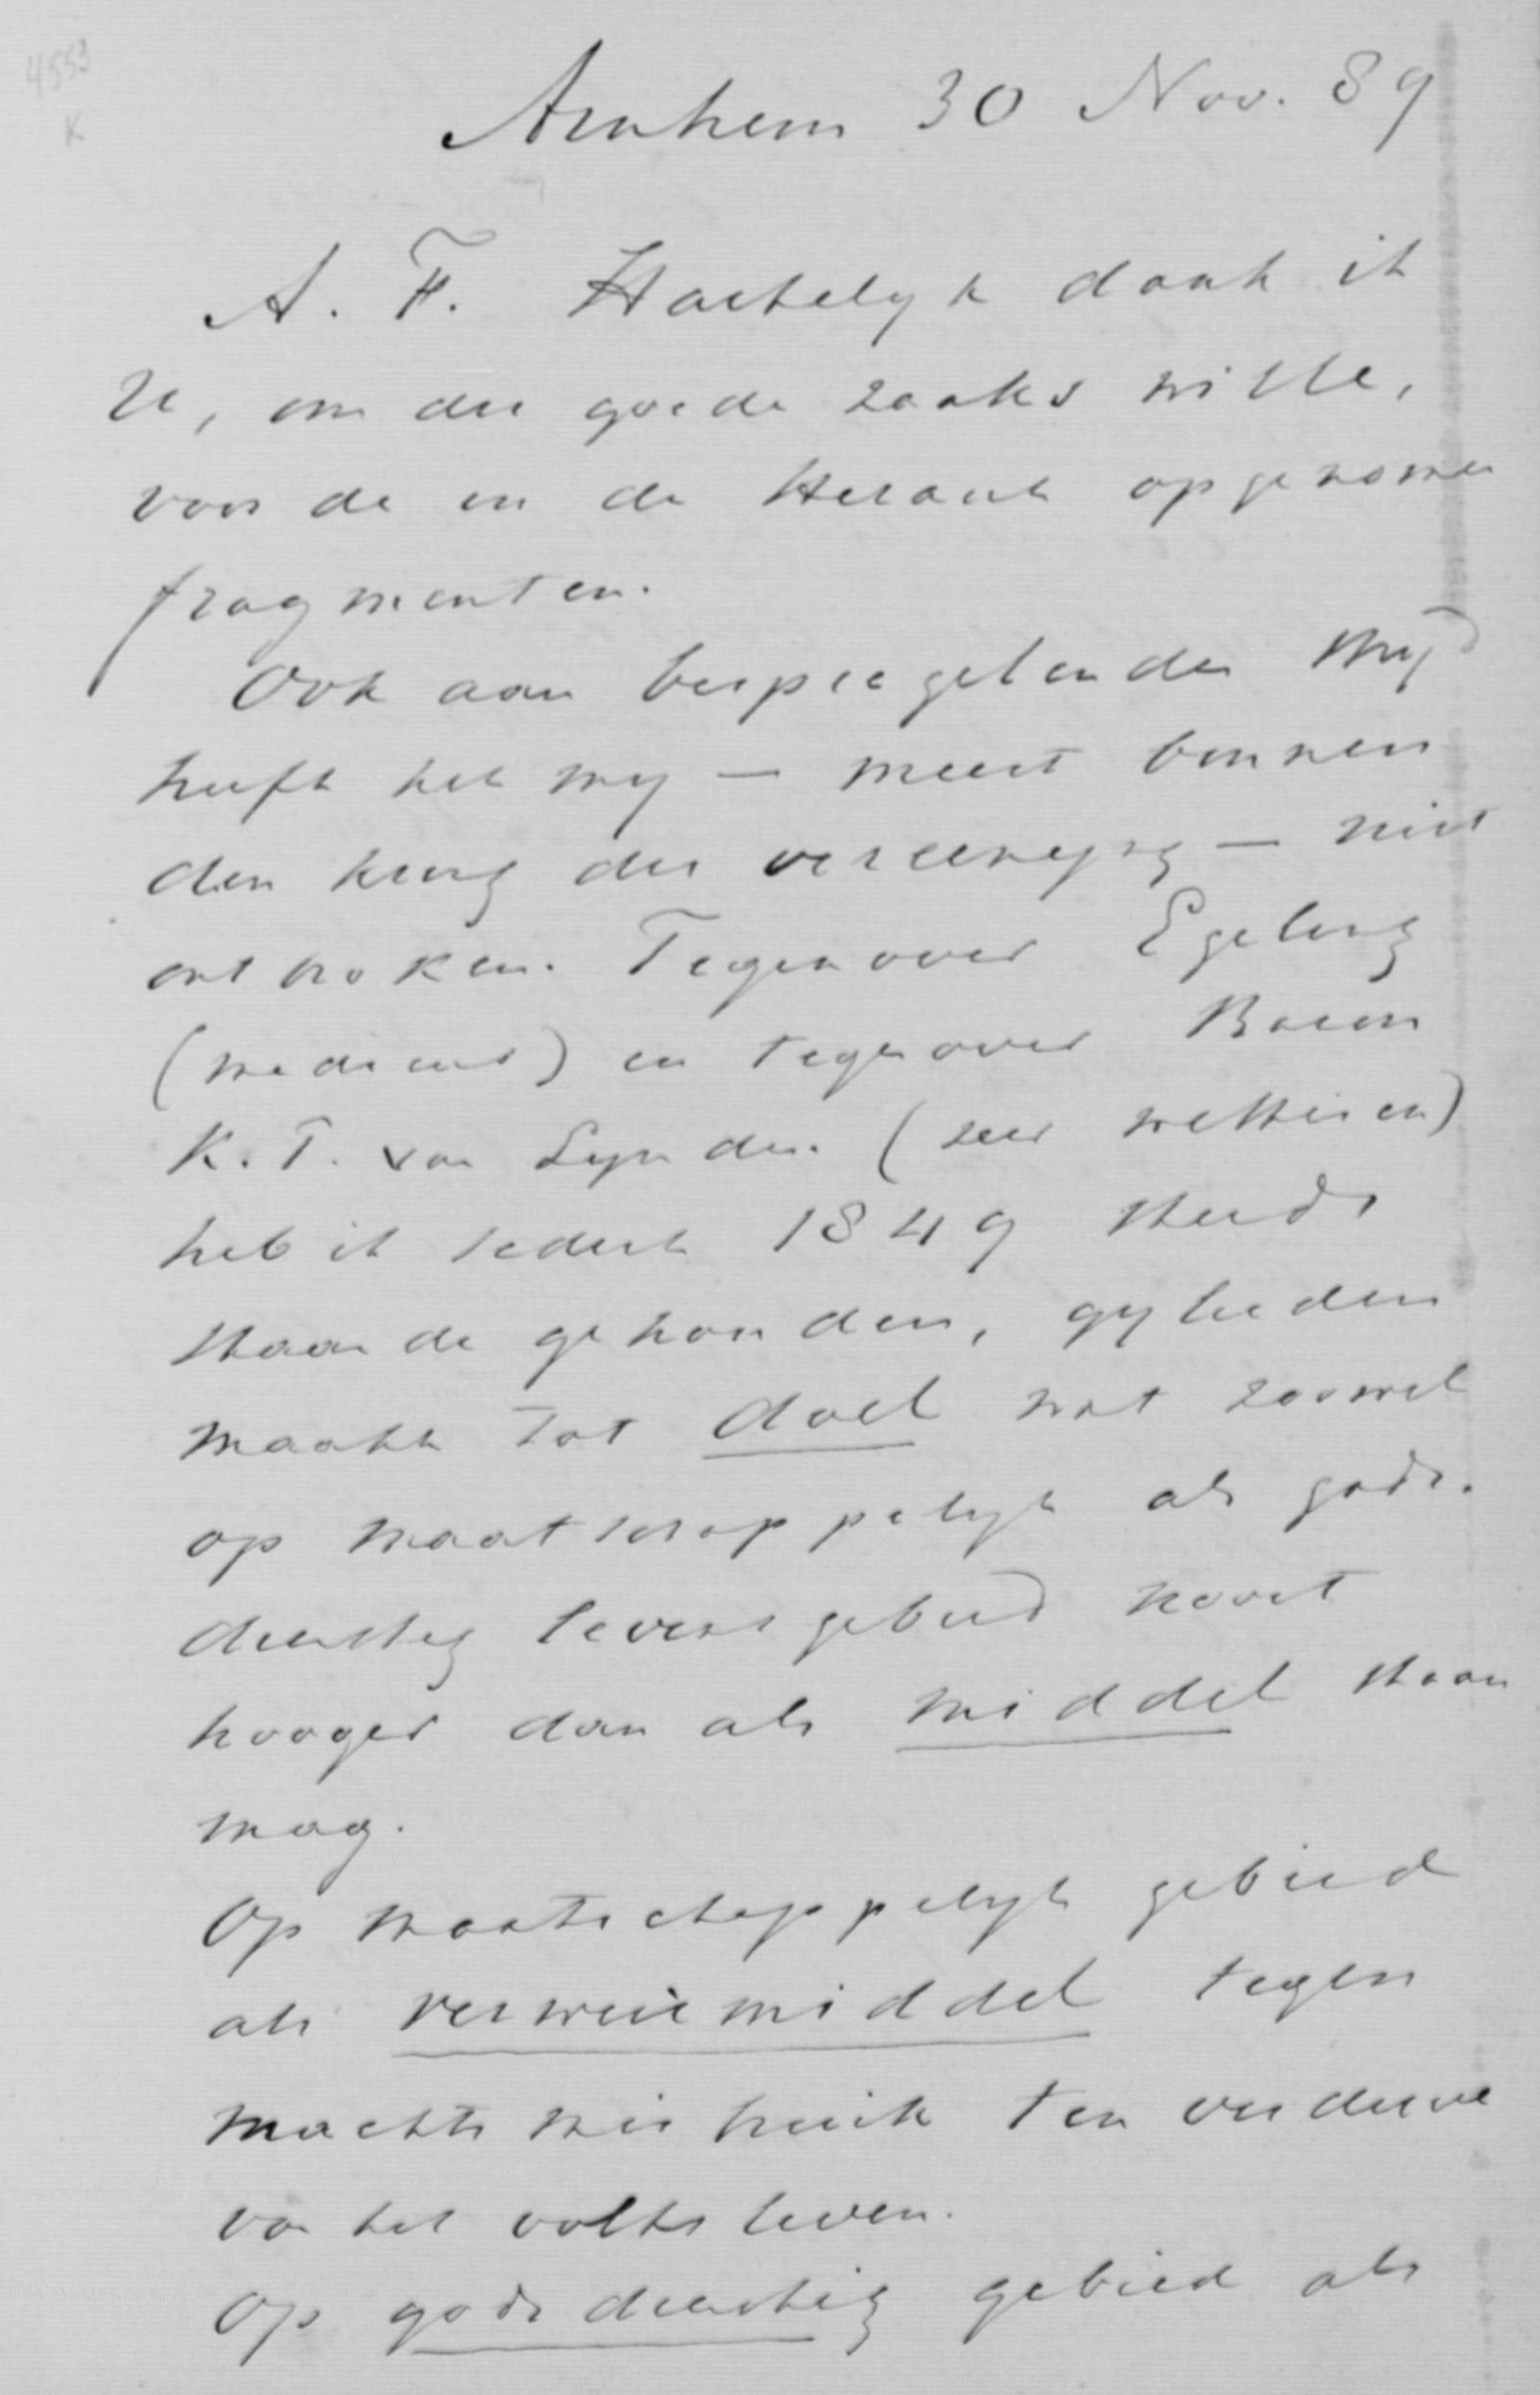 4553
K
Arnhem 30 Nov. 89
A. F. Hartelyk dank ik
U, om der goede zaaks wille,
voor de in de Heraut opgenomen
fragmenten.
Ook aan bespiegelende stryd
heeft het my — meest binnen
den kring der vereeniging — niet
ontbroken. Tegenover Egeling
(medicus) en tegenover Baron
K. T. van Lynden (zeer wetticen)
heb ik sedert 1849 steeds
staande gehouden, gylieden
maakt tot doel wat zoowel
op maatschappelyk als gods-
dienstig levensgebied nooit
hooger dan als middel staan
mag.
Op maatschappelyk gebied
als verweermiddel tegen
machtsmisbruik ten verderve
van het volksleven.
Op godsdienstig gebied als